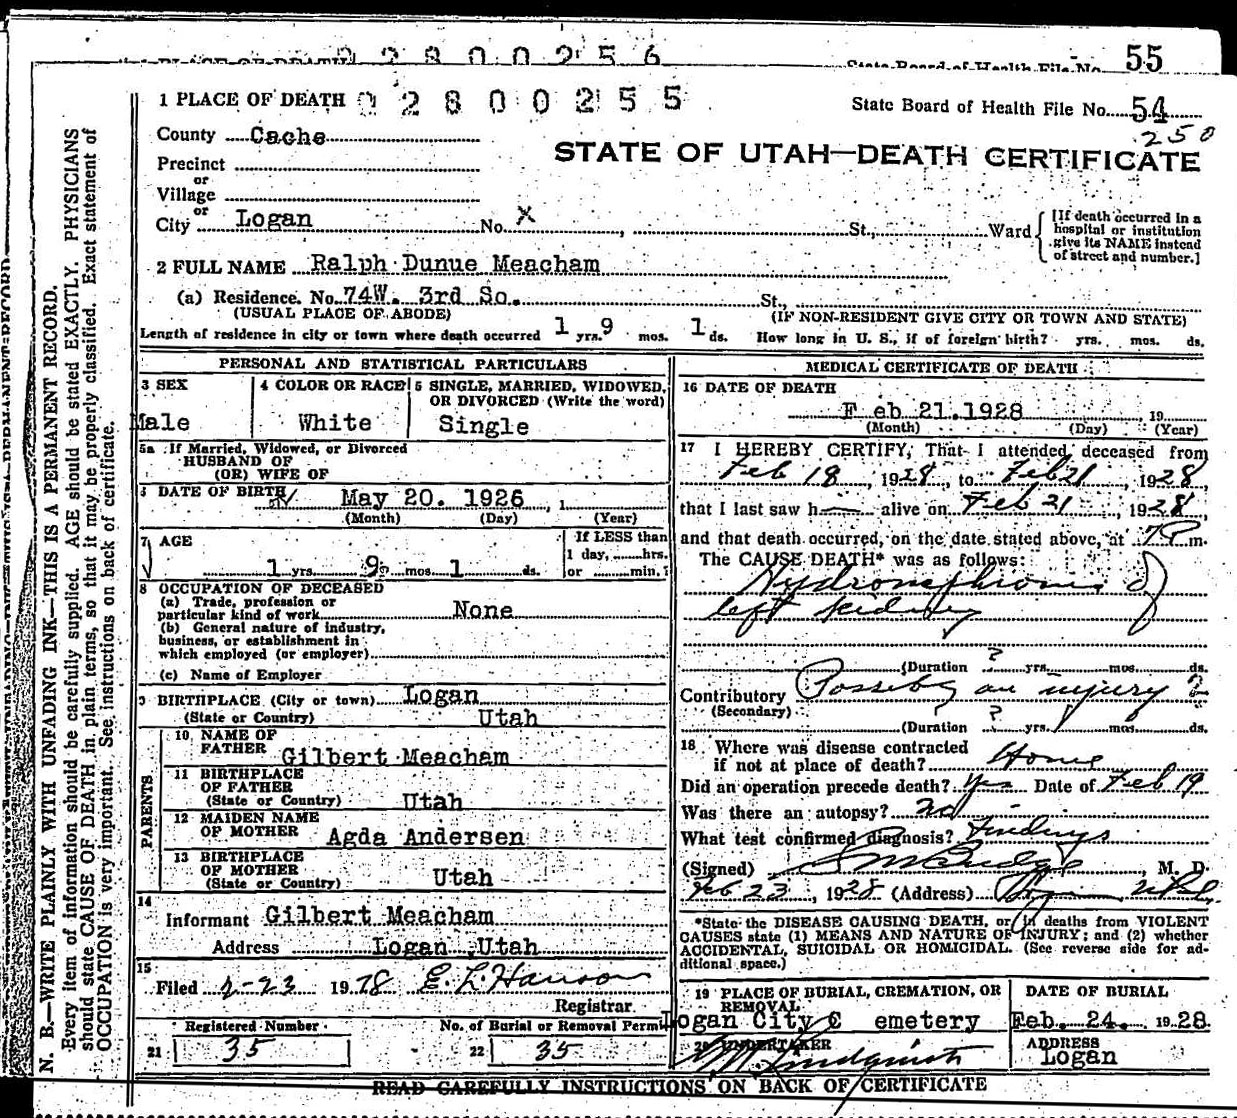 0 2 8 0 0 2 5 6
State Board of Health File No. 55
1 PLACE OF DEATH 0 2 8 0 0 2 5 5
State Board of Health File No. 54
250
County Cache
STATE OF UTAH—DEATH CERTIFICATE
Precinct
or
Village
or
City Logan No. X St., Ward
[If death occurred in a
hospital or institution
give its NAME instead
of street and number.]
2 FULL NAME Ralph Dunue Meacham
(a) Residence. No. 74W. 3rd So. St.,
(USUAL PLACE OF ABODE) (IF NON-RESIDENT GIVE CITY OR TOWN AND STATE)
Length of residence in city or town where death occurred 1 yrs. 9 mos. 1 ds. How long in U. S., if of foreign birth? yrs. mos. ds.
PERSONAL AND STATISTICAL PARTICULARS
3 SEX 4 COLOR OR RACE 5 SINGLE, MARRIED, WIDOWED,
OR DIVORCED (Write the word)
Male White Single
5a If Married, Widowed, or Divorced
HUSBAND OF
(OR) WIFE OF
6 DATE OF BIRTH May 20. 1926, 1
(Month) (Day) (Year)
7 AGE If LESS than
1 day, hrs.
1 yrs. 9 mos. 1 ds. or min.?
8 OCCUPATION OF DECEASED
(a) Trade, profession or
particular kind of work None
(b) General nature of industry,
business, or establishment in
which employed (or employer)
(c) Name of Employer
9 BIRTHPLACE (City or town) Logan
(State or Country) Utah
PARENTS
10 NAME OF
FATHER Gilbert Meacham
11 BIRTHPLACE
OF FATHER
(State or Country) Utah
12 MAIDEN NAME
OF MOTHER Agda Andersen
13 BIRTHPLACE
OF MOTHER
(State or Country) Utah
14
Informant Gilbert Meacham
Address Logan Utah
15
Filed 2-23 1928 E. L. Hanson
Registrar
Registered Number No. of Burial or Removal Permit
21 35 22 35
MEDICAL CERTIFICATE OF DEATH
16 DATE OF DEATH
F eb 21.1928 19
(Month) (Day) (Year)
17 I HEREBY CERTIFY, That I attended deceased from
Feb 18, 1928, to Feb 21, 1928,
that I last saw h— alive on Feb 21, 1928,
and that death occurred, on the date stated above, at 7 P m.
The CAUSE DEATH* was as follows:
Hydronephrosis of
left kidney
(Duration ? yrs. mos. ds.
Contributory Possibly an injury ?
(Secondary)
(Duration ? yrs. ? mos. ds.
18 Where was disease contracted
if not at place of death? Home
Did an operation precede death? Yes Date of Feb 19
Was there an autopsy? No
What test confirmed diagnosis? Findings
(Signed) S M Budge, M. D.
Feb 23, 1928 (Address) Logan Utah.
*State the DISEASE CAUSING DEATH, or in deaths from VIOLENT
CAUSES state (1) MEANS AND NATURE OF INJURY; and (2) whether
ACCIDENTAL, SUICIDAL OR HOMICIDAL. (See reverse side for ad-
ditional space.)
19 PLACE OF BURIAL, CREMATION, OR
REMOVAL DATE OF BURIAL
Logan City C emetery Feb. 24. 1928
20 UNDERTAKER ADDRESS
Lindquist Logan
READ CAREFULLY INSTRUCTIONS ON BACK OF CERTIFICATE
N. B.—WRITE PLAINLY WITH UNFADING INK—THIS IS A PERMANENT RECORD.
Every item of information should be carefully supplied. AGE should be stated EXACTLY. PHYSICIANS
should state CAUSE OF DEATH in plain terms, so that it may be properly classified. Exact statement of
OCCUPATION is very important. See instructions on back of certificate.